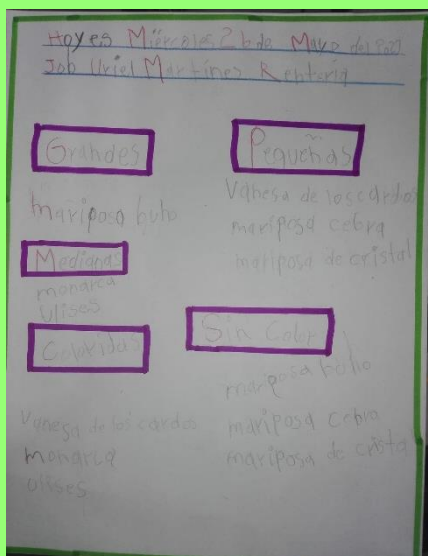 Hoy es Miércoles 26 de Mayo del 2021
Job Uriel Martines Rentería
Grandes
mariposa buho
Medianas
monarca
Ulises
Coloridas
Vanesa de los cardos
monarca
ulises
Pequeñas
Vanesa de los cardos
mariposa cebra
mariposa de cristal
Sin Color
mariposa buho
mariposa cebra
mariposa de cristal